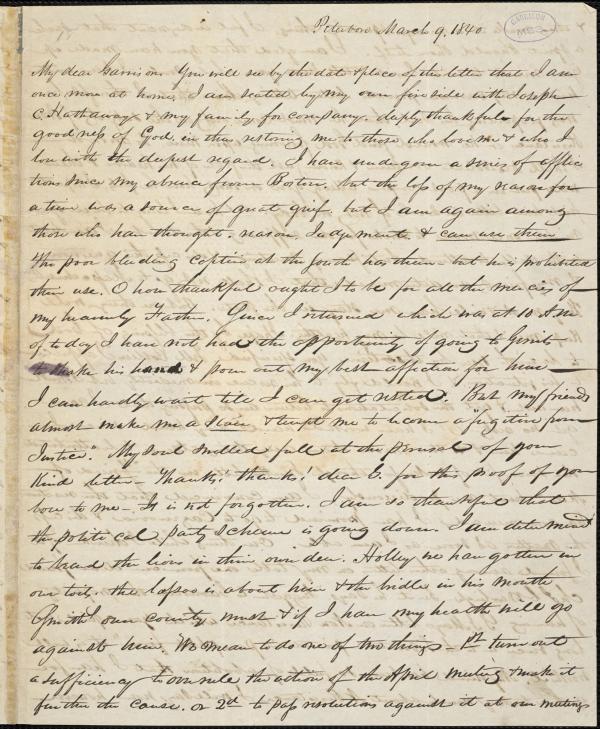 Peterboro March 9, 1840
GARRISON
MSS.
My dear Garrison You will see by the date & place of this letter that I am
once more at home. I am seated by my own fireside with Joseph
C. Hathaway & my family for company. deeply thankful for the
goodness of God. in thus restoring me to those who love me & who I
love with the deepest regard. I have undergone a series of afflic
tions since my absence from Boston. but the loss of my reason for
a time was a source of great grief. but I am again among
those who have thought. reason, Judgement & can use them
The poor bleeding captive at the South has them but he is prohibited
their use. O how thankful ought I to be for all the mercies of
my heavenly Father. Since I returned which was at 10 A.M.
of to day I have not had the opportunity of going to Gerrits
to shake his hand & pour out my best affection for him
I can hardly wait till I can get rested. But my friends
almost make me a slave & tempt me to become a "fugitive from
Justice". My soul swelled full at the perusal of your
kind letter – Thanks! thanks! dear G. for this proof of your
love to me – It is not forgotten. I am so thankful that
the political party scheme is going down. I am determined
to beard the lions in their own den. Holley we have gotten in
our toils. the lasso is about him & the bridle in his mouth
Smith! our county must & if I have my health will go
against him. We mean to do one of two things – 1st turn out
a sufficiency to overrule the action of the April meeting & make it
further the cause. or 2d to pass resolutions against it at our meetings